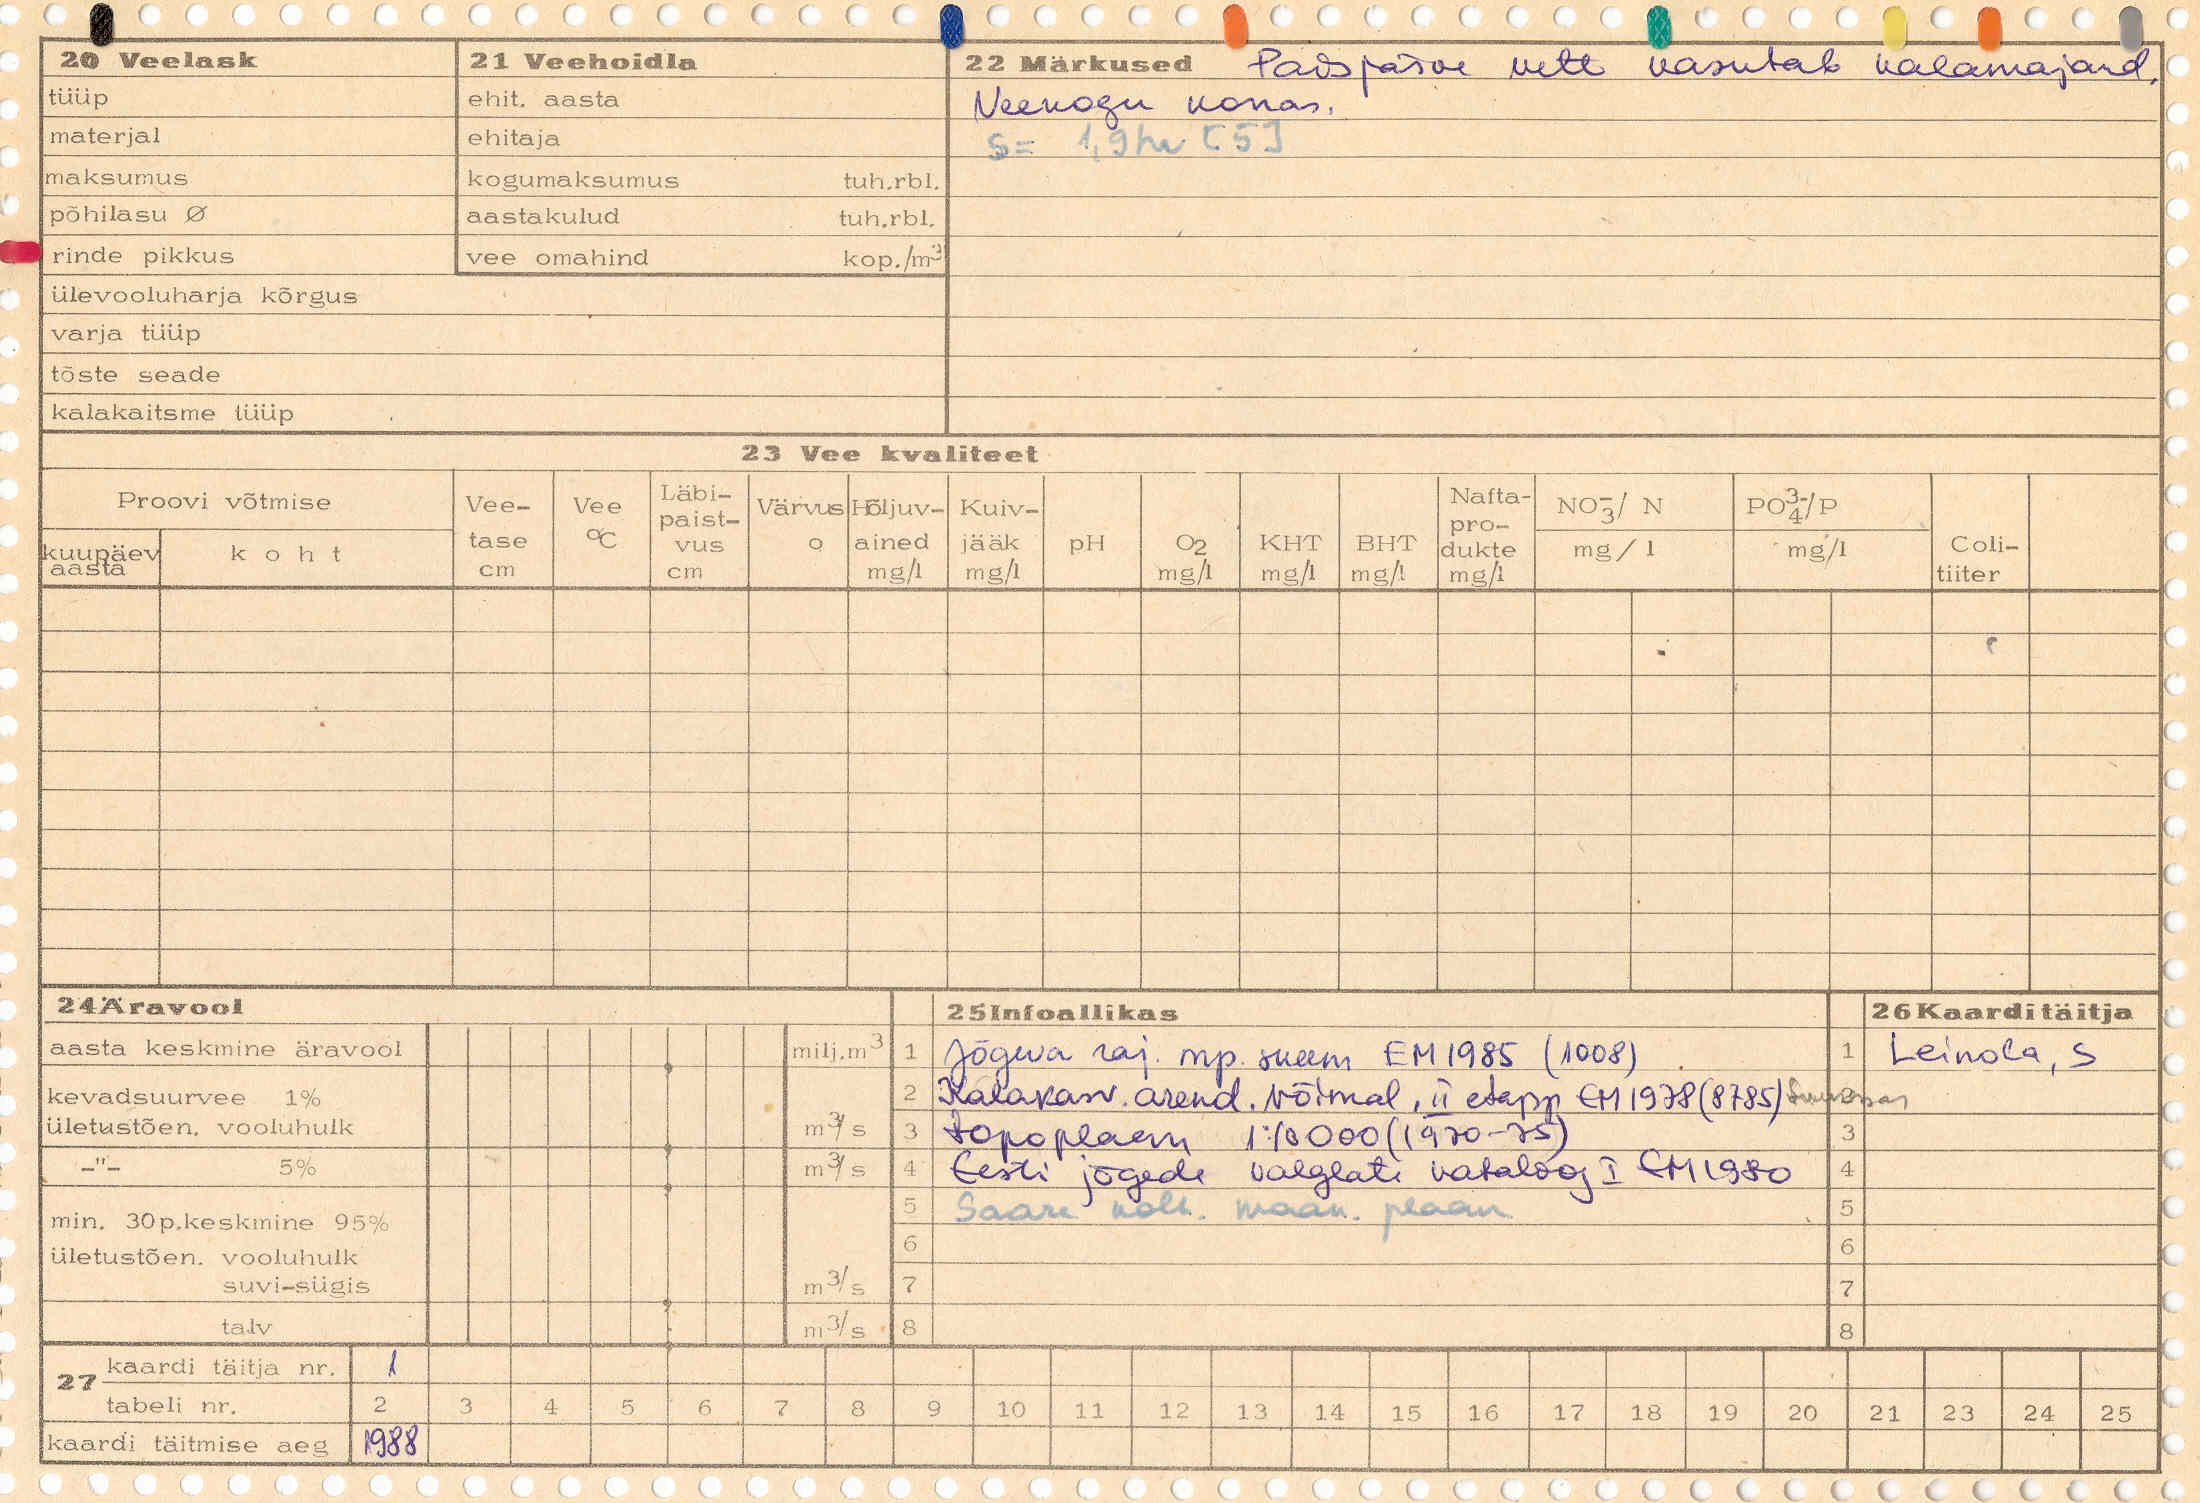 20 Veelask
tüüp
materjal
maksumus
põhilasu Ø
rinde pikkus
ülevooluharja kõrgus
varja tüüp
tõste seade
kalakaitsme tüüp
21 Veehoidla
ehit. aasta
ehitaja
kogumaksumus tuh.rbl.
aastakulud tuh.rbl.
vee omahind kop./m³
22 Märkused Paisjärve vett kasutab kalamajand.
Veekogu korras.
S= 1,9 ha [5]
23 Vee kvaliteet
Proovi võtmise
kuupäev aasta
koht
Vee-
tase
cm
Vee
°C
Läbi-
paist-
vus
cm
Värvus
o
Hõljuv-
ained
mg/l
Kuiv-
jääk
mg/l
pH
O2
mg/l
KHT
mg/l
BHT
mg/l
Nafta-
pro-
dukte
mg/l
NO₃⁻/ N
mg/l
PO₄³⁻/P
mg/l
Coli-
tiiter
24 Äravool
aasta keskmine äravool milj.m³
kevadsuurvee 1%
ületustõen. vooluhulk m³/s
-"- 5% m³/s
min. 30p.keskmine 95%
ületustõen. vooluhulk
suvi-sügis m³/s
talv m³/s
25 Infoallikas
1 Jõgeva raj. mp. skeem EM 1985 (1008)
2 Kalakasv. arend. võimal. II etapp EM 1978 (8785)
3 Topoplaan 1:10 000 (1970-75)
4 Eesti jõgede valglate kataloog I EM 1980
5 Saare kolh. maak. plaan
6
7
8
26 Kaarditäitja
1 Leinola, S
3
4
5
6
7
8
27 kaardi täitja nr. 1
tabeli nr. 2 3 4 5 6 7 8 9 10 11 12 13 14 15 16 17 18 19 20 21 23 24 25
kaardi täitmise aeg 1988